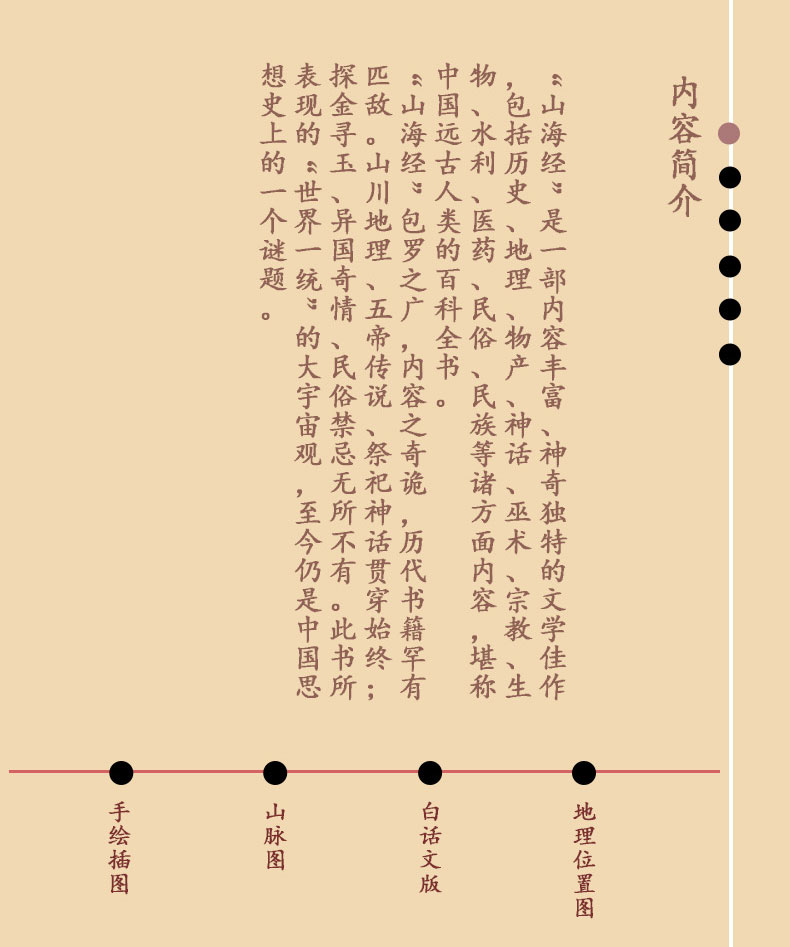 内容简介
“山海经”是一部内容丰富、神奇独特的文学佳作
，包括历史、地理、物产、神话、巫术、宗教、生
物、水利、医药、民俗、民族等诸方面内容，堪称
中国远古人类的百科全书。
“山海经”包罗之广，内容之奇诡，历代书籍罕有
匹敌。山川地理、五帝传说、祭祀神话贯穿始终；
探金寻玉、异国奇情、民俗禁忌无所不有。此书所
表现的“世界一统”的大宇宙观，至今仍是中国思
想史上的一个谜题。
地理位置图
白话文版
山脉图
手绘插图